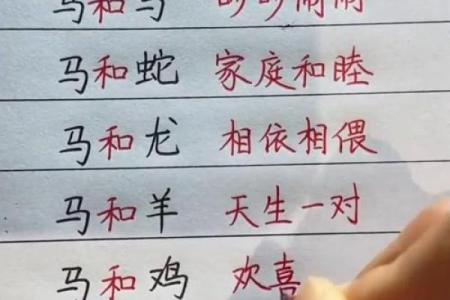 马和马 吵吵闹闹
马和蛇 家庭和睦
马和龙 相依相偎
马和羊 天生一对
马和鸡 欢喜